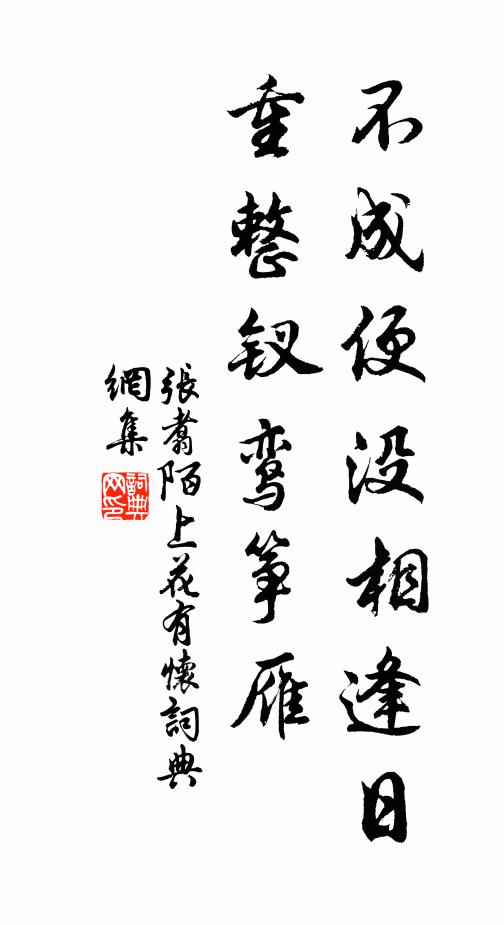 不成便没相逢日
重整钗鸾筝雁
張翥陌上花有懷詞典
網集
詞典
网印